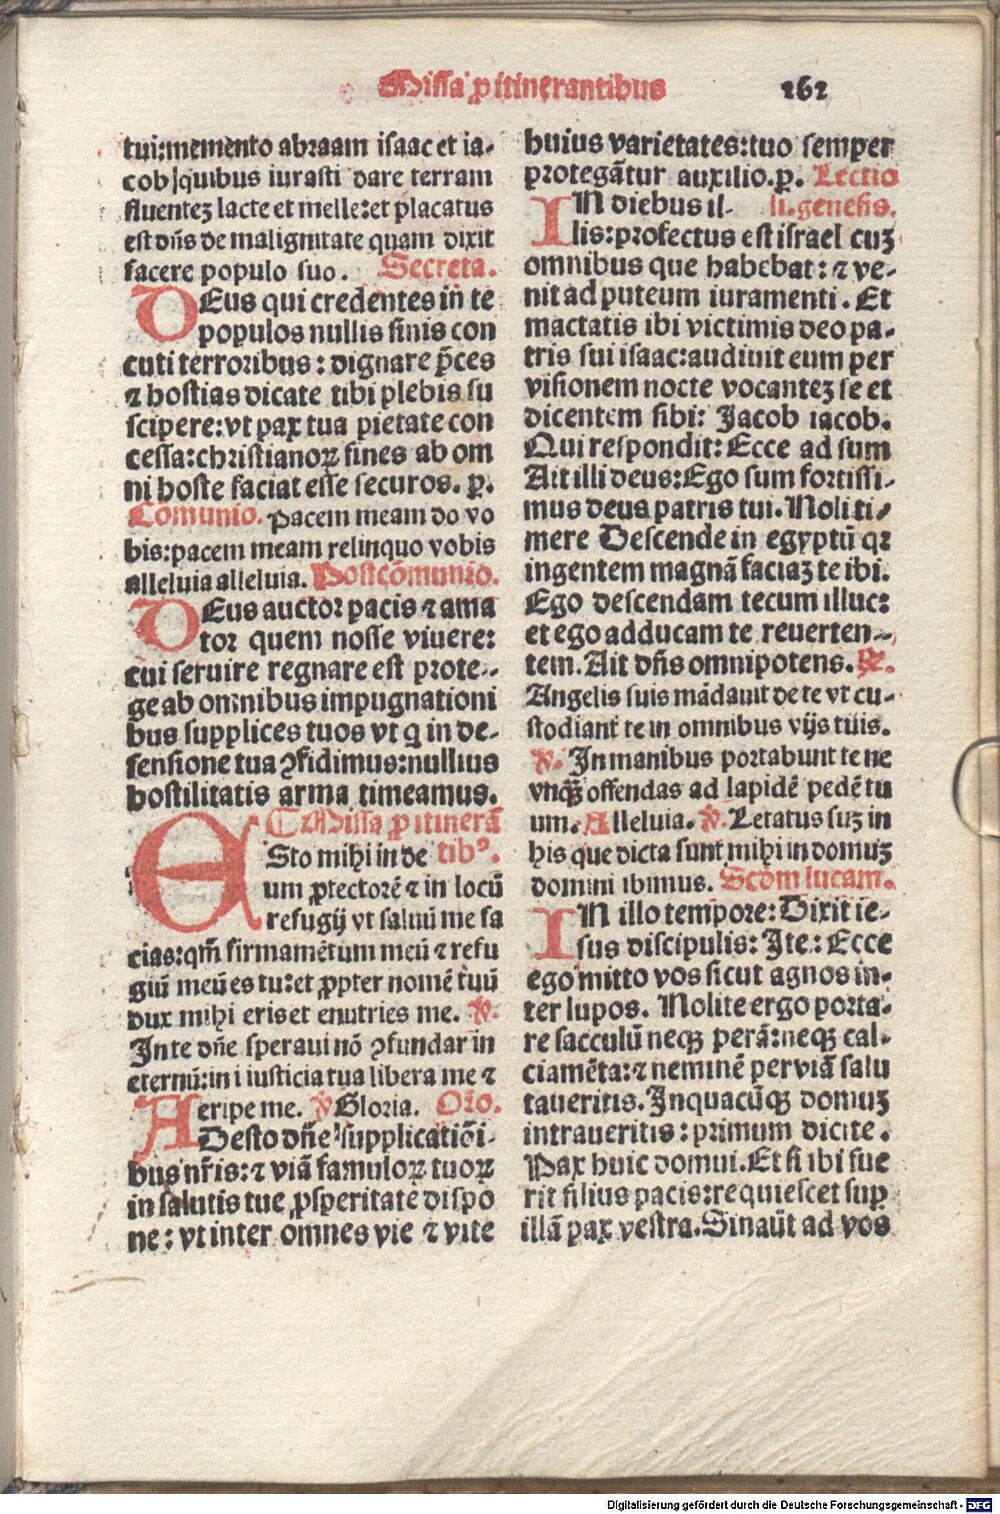 Missa ꝓ itinerantibus 262
tui:memento abraam isaac et ia-
cob|quibus iurasti dare terram
fluentez lacte et melle:et placatus
est dñs de malignitate quam dixit
facere populo suo. Secreta.
DEus qui credentes in te
populos nullis sinis con
cuti terroribus: dignare p̄ces
⁊ hostias dicate tibi plebis su
scipere:vt pax tua pietate con
cessa:christianoꝝ fines ab om
ni hoste faciat esse securos. p.
Cōmunio. Pacem meam do vo
bis:pacem meam relinquo vobis
alleluia alleluia. Postcōmunio.
DEus auctor pacis ⁊ ama
tor quem nosse viuere:
cui seruire regnare est prote-
ge ab omnibus impugnationi
bus supplices tuos vt q in de-
fensione tua ꝯfidimus:nullius
hostilitatis arma timeamus.
¶ Missa ꝓ itinerā
ESto mihi in de tibꝰ.
um ꝓtectorē ⁊ in locū
refugij vt saluū me fa
cias:qm̄ firmamētum meū ⁊ refu
giū meū es tu:et ꝓpter nomē tuū
dux mihi eris et enutries me. ℣.
In te dñe speraui nō ꝯfundar in
eternū:in i iusticia tua libera me ⁊
eripe me. ℣ Gloria. Oro.
ADesto dñe supplicatiōi-
bus nr̄is:⁊ viā famuloꝝ tuoꝝ
in salutis tue ꝓsperitate dispo
ne: vt inter omnes vie ⁊ vite
huius varietates:tuo semper
protegātur auxilio.p. Lectio
IN diebus il- li.genesis.
lis:profectus est israel cuz
omnibus que habebat: ⁊ ve-
nit ad puteum iuramenti. Et
mactatis ibi victimis deo pa-
tris sui isaac:audiuit eum per
visionem nocte vocantez se et
dicentem sibi: Jacob iacob.
Qui respondit: Ecce ad sum
Ait illi deus:Ego sum fortissi-
mus deus patris tui. Noli ti-
mere Descende in egyptū qꝛ
ingentem magnā faciaz te ibi.
Ego descendam tecum illuc:
et ego adducam te reuerten-
tem. Ait dñs omnipotens. ℟.
Angelis suis mādauit de te vt cu-
stodiant te in omnibus vijs tuis.
℣. In manibus portabunt te ne
vnqꝫ offendas ad lapidē pedē tu
um. Alleluia. ℣. Letatus suz in
his que dicta sunt mihi in domuz
domini ibimus. Scdm lucam.
IN illo tempore: Dixit ie-
sus discipulis: Ite: Ecce
ego mitto vos sicut agnos in-
ter lupos. Nolite ergo porta-
re sacculū neqꝫ perā:neqꝫ cal-
ciamēta:⁊ neminē per viā salu
taueritis. In quacūqꝫ domuz
intraueritis: primum dicite.
Pax huic domui. Et si ibi fue
rit filius pacis:requiescet sup
illā pax vestra. Sinaūt ad vos
Digitalisierung gefördert durch die Deutsche Forschungsgemeinschaft - DFG